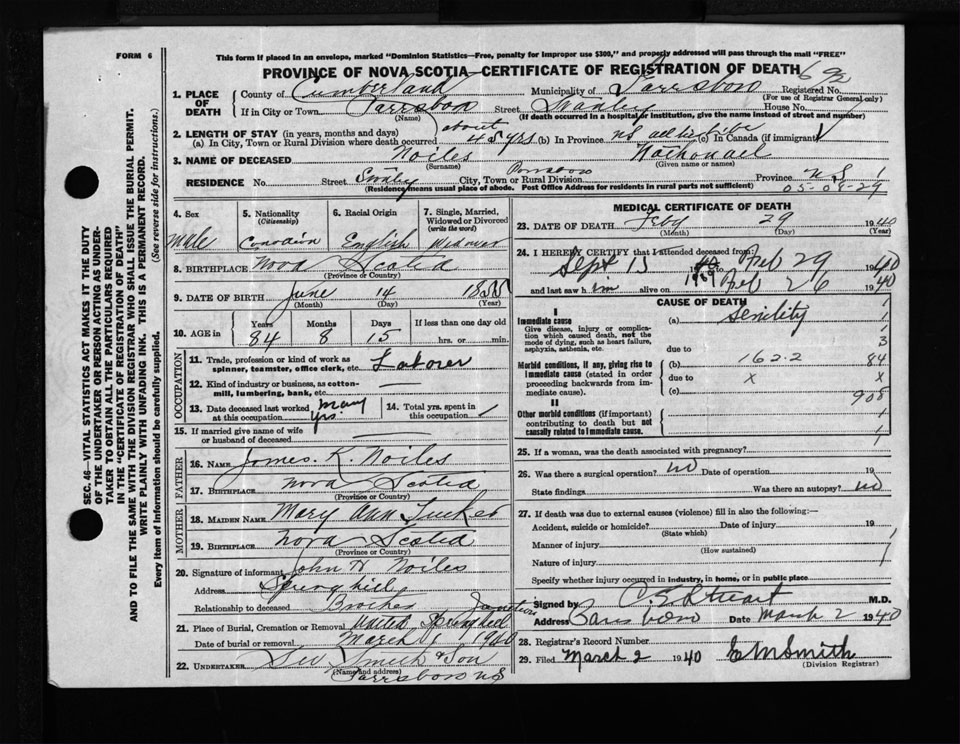 FORM 6
This form if placed in an envelope, marked "Dominion Statistics—Free, penalty for improper use $300," and properly addressed will pass through the mail "FREE"
PROVINCE OF NOVA SCOTIA—CERTIFICATE OF REGISTRATION OF DEATH
1. PLACE OF DEATH
County of Cumberland Municipality of Parrsboro Registered No.
(For use of Registrar General only)
If in City or Town Parrsboro Street Swanley House No.
(Name) (If death occurred in a hospital or institution, give the name instead of street and number)
2. LENGTH OF STAY (in years, months and days)
(a) In City, Town or Rural Division where death occurred about 45 yrs (b) In Province NS all his life (c) In Canada (if immigrant)
3. NAME OF DECEASED Noiles Nathanael
(Surname) (Given name or names)
RESIDENCE No. Street City, Town or Rural Division Parrsboro Province N S
(Residence means usual place of abode. Post Office Address for residents in rural parts not sufficient) 05-09-29
4. Sex
Male
5. Nationality
(Citizenship)
Canadian
6. Racial Origin
English
7. Single, Married, Widowed or Divorced
(write the word)
Widower
8. BIRTHPLACE Nova Scotia
(Province or Country)
9. DATE OF BIRTH June 14 1855
(Month) (Day) (Year)
10. AGE in
Years Months Days If less than one day old
84 8 15 hrs. or min.
OCCUPATION
11. Trade, profession or kind of work as spinner, teamster, office clerk, etc. Laborer
12. Kind of industry or business, as cotton-mill, lumbering, bank, etc.
13. Date deceased last worked at this occupation many yrs.
14. Total yrs. spent in this occupation
15. If married give name of wife or husband of deceased
FATHER
16. NAME James K. Noiles
17. BIRTHPLACE Nova Scotia
(Province or Country)
MOTHER
18. MAIDEN NAME Mary Ann Tucker
19. BIRTHPLACE Nova Scotia
(Province or Country)
20. Signature of informant John H Noiles
Address Springhill
Relationship to deceased Brother
21. Place of Burial, Cremation or Removal United Springhill Junction
Date of burial or removal March 1940
22. UNDERTAKER Geo Smith & Son
(Name and address)
Parrsboro NS
MEDICAL CERTIFICATE OF DEATH
23. DATE OF DEATH Feby 29 1940
(Month) (Day) (Year)
24. I HEREBY CERTIFY that I attended deceased from:
Sept 15 1939 to Feb 29 1940
and last saw him alive on Feb 26 1940
CAUSE OF DEATH
I
Immediate cause
Give disease, injury or complication which caused death, not the mode of dying, such as heart failure, asphyxia, asthenia, etc.
(a) Senility
due to
Morbid conditions, if any, giving rise to immediate cause (stated in order proceeding backwards from immediate cause).
(b) 162-2 84
due to x x
(c) 908
II
Other morbid conditions (if important) contributing to death but not causally related to immediate cause.
25. If a woman, was the death associated with pregnancy?
26. Was there a surgical operation? no Date of operation 19
State findings Was there an autopsy? no
27. If death was due to external causes (violence) fill in also the following:—
Accident, suicide or homicide? Date of injury 19
(State which)
Manner of injury
(How sustained)
Nature of injury
Specify whether injury occurred in industry, in home, or in public place
Signed by C S Stuart M.D.
Address Parrsboro Date March 2 1940
28. Registrar's Record Number
29. Filed March 2 1940 E M Smith
(Division Registrar)
SEC. 46—VITAL STATISTICS ACT MAKES IT THE DUTY
OF THE UNDERTAKER OR PERSON ACTING AS UNDER-
TAKER TO OBTAIN ALL THE PARTICULARS REQUIRED
IN THE "CERTIFICATE OF REGISTRATION OF DEATH"
AND TO FILE THE SAME WITH THE DIVISION REGISTRAR WHO SHALL ISSUE THE BURIAL PERMIT.
WRITE PLAINLY WITH UNFADING INK. THIS IS A PERMANENT RECORD.
Every item of Information should be carefully supplied. (See reverse side for instructions.)